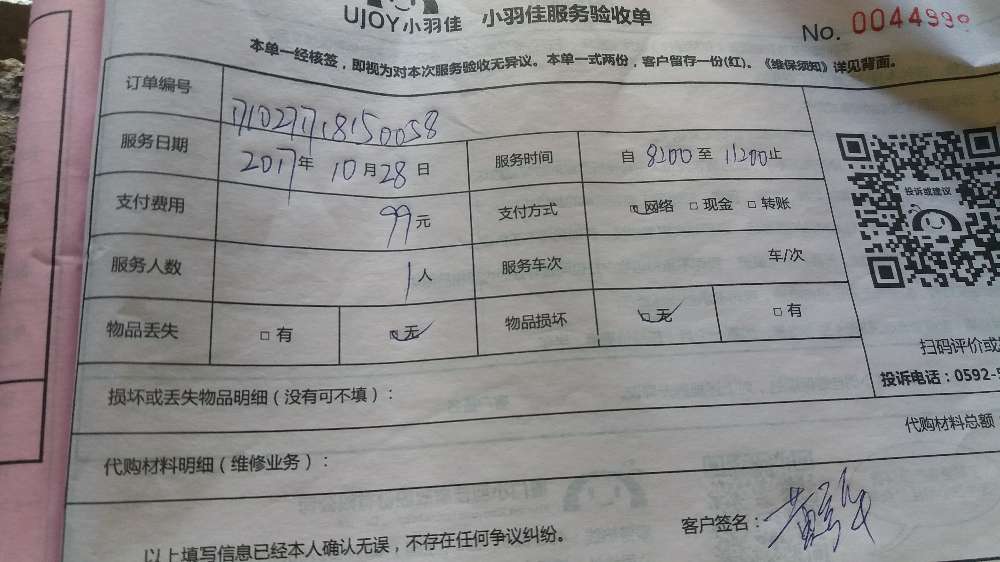 UJOY小羽佳 小羽佳服务验收单
No. 0044998
本单一经核签，即视为对本次服务验收无异议。本单一式两份，客户留存一份(红)。《维保须知》详见背面。
订单编号 171027718150058
服务日期 2017年10月28日 服务时间 自8:00至11:00止
支付费用 99元 支付方式 网络 现金 转账
投诉或建议
服务人数 1人 服务车次 车/次
物品丢失 有 无 物品损坏 无 有
扫码评价或
投诉电话：0592-5
损坏或丢失物品明细（没有可不填）：
代购材料总额
代购材料明细（维修业务）：
客户签名：
以上填写信息已经本人确认无误，不存在任何争议纠纷。